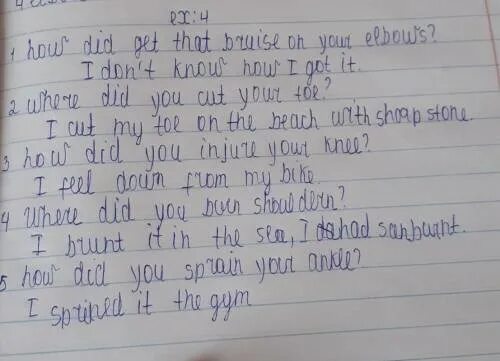 ex:4
1 how did get that bruise on your eebows?
I don't know how I got it.
2 where did you cut your toe?
I cut my toe on the beach with shoap stone.
3 how did you injure your knee?
I feel down from my bike
4 where did you burn shouldern?
I brunt it in the sea, I had sanburnt.
5 how did you sprain your ankle?
I sprined it the gym